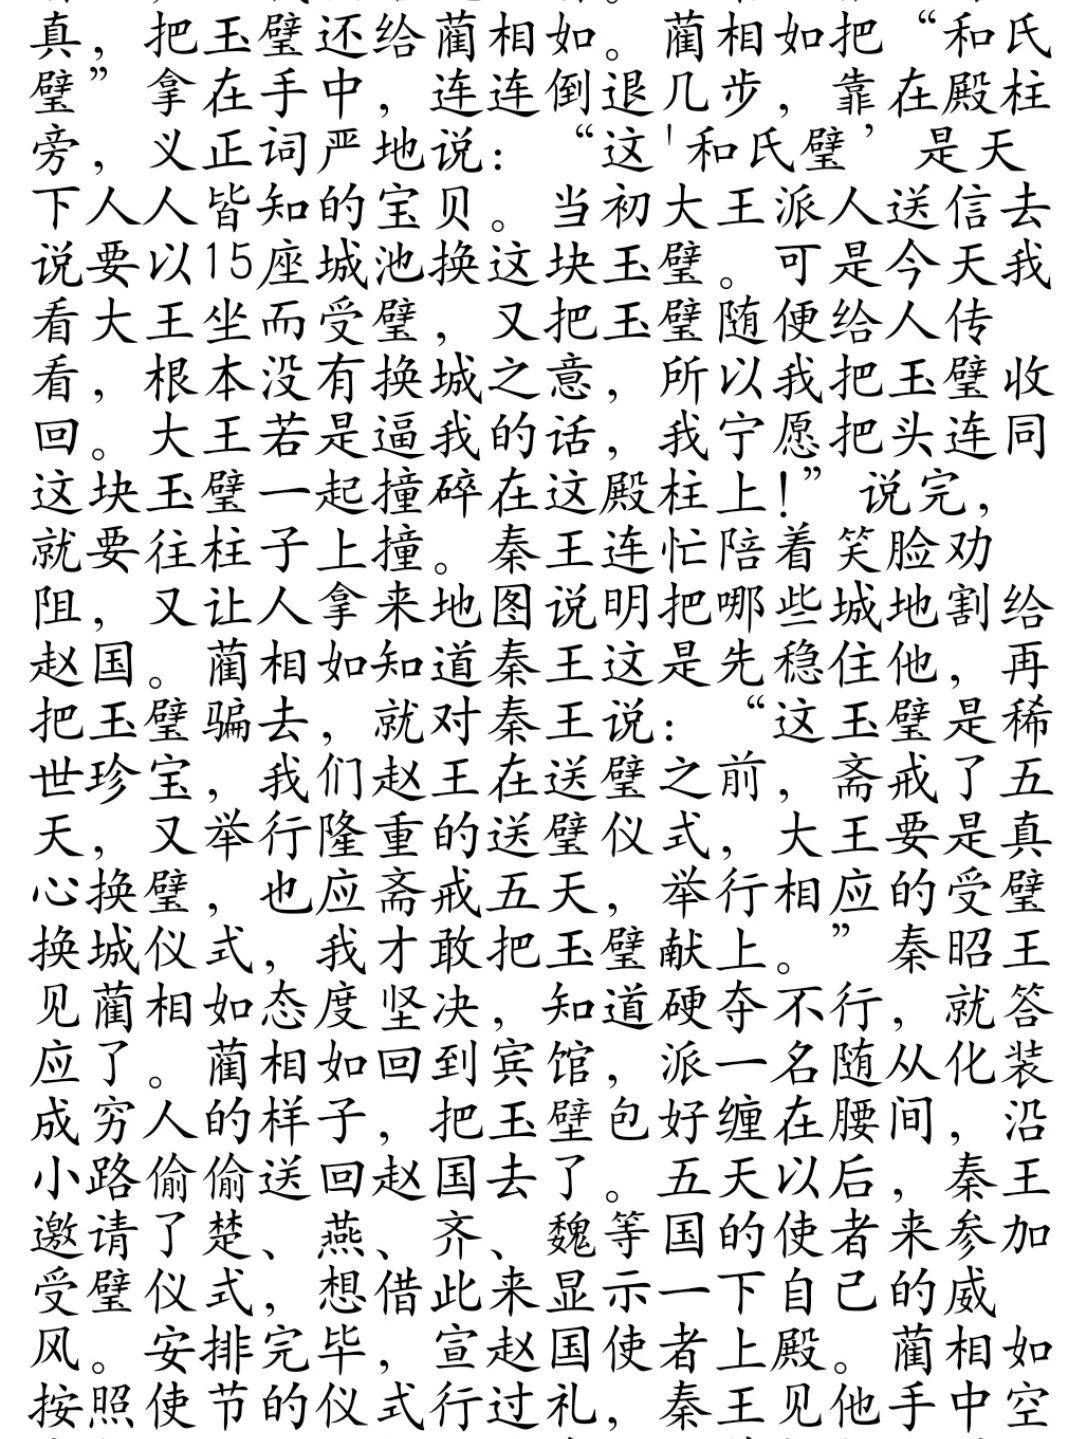 真，把玉璧还给蔺相如。蔺相如把“和氏
璧”拿在手中，连连倒退几步，靠在殿柱
旁，义正词严地说：“这'和氏璧’是天
下人人皆知的宝贝。当初大王派人送信去
说要以15座城池换这块玉璧。可是今天我
看大王坐而受璧，又把玉璧随便给人传
看，根本没有换城之意，所以我把玉璧收
回。大王若是逼我的话，我宁愿把头连同
这块玉璧一起撞碎在这殿柱上！”说完，
就要往柱子上撞。秦王连忙陪着笑脸劝
阻，又让人拿来地图说明把哪些城地割给
赵国。蔺相如知道秦王这是先稳住他，再
把玉璧骗去，就对秦王说：“这玉璧是稀
世珍宝，我们赵王在送璧之前，斋戒了五
天，又举行隆重的送璧仪式，大王要是真
心换璧，也应斋戒五天，举行相应的受璧
换城仪式，我才敢把玉璧献上。”秦昭王
见蔺相如态度坚决，知道硬夺不行，就答
应了。蔺相如回到宾馆，派一名随从化装
成穷人的样子，把玉壁包好缠在腰间，沿
小路偷偷送回赵国去了。五天以后，秦王
邀请了楚、燕、齐、魏等国的使者来参加
受璧仪式，想借此来显示一下自己的威
风。安排完毕，宣赵国使者上殿。蔺相如
按照使节的仪式行过礼，秦王见他手中空